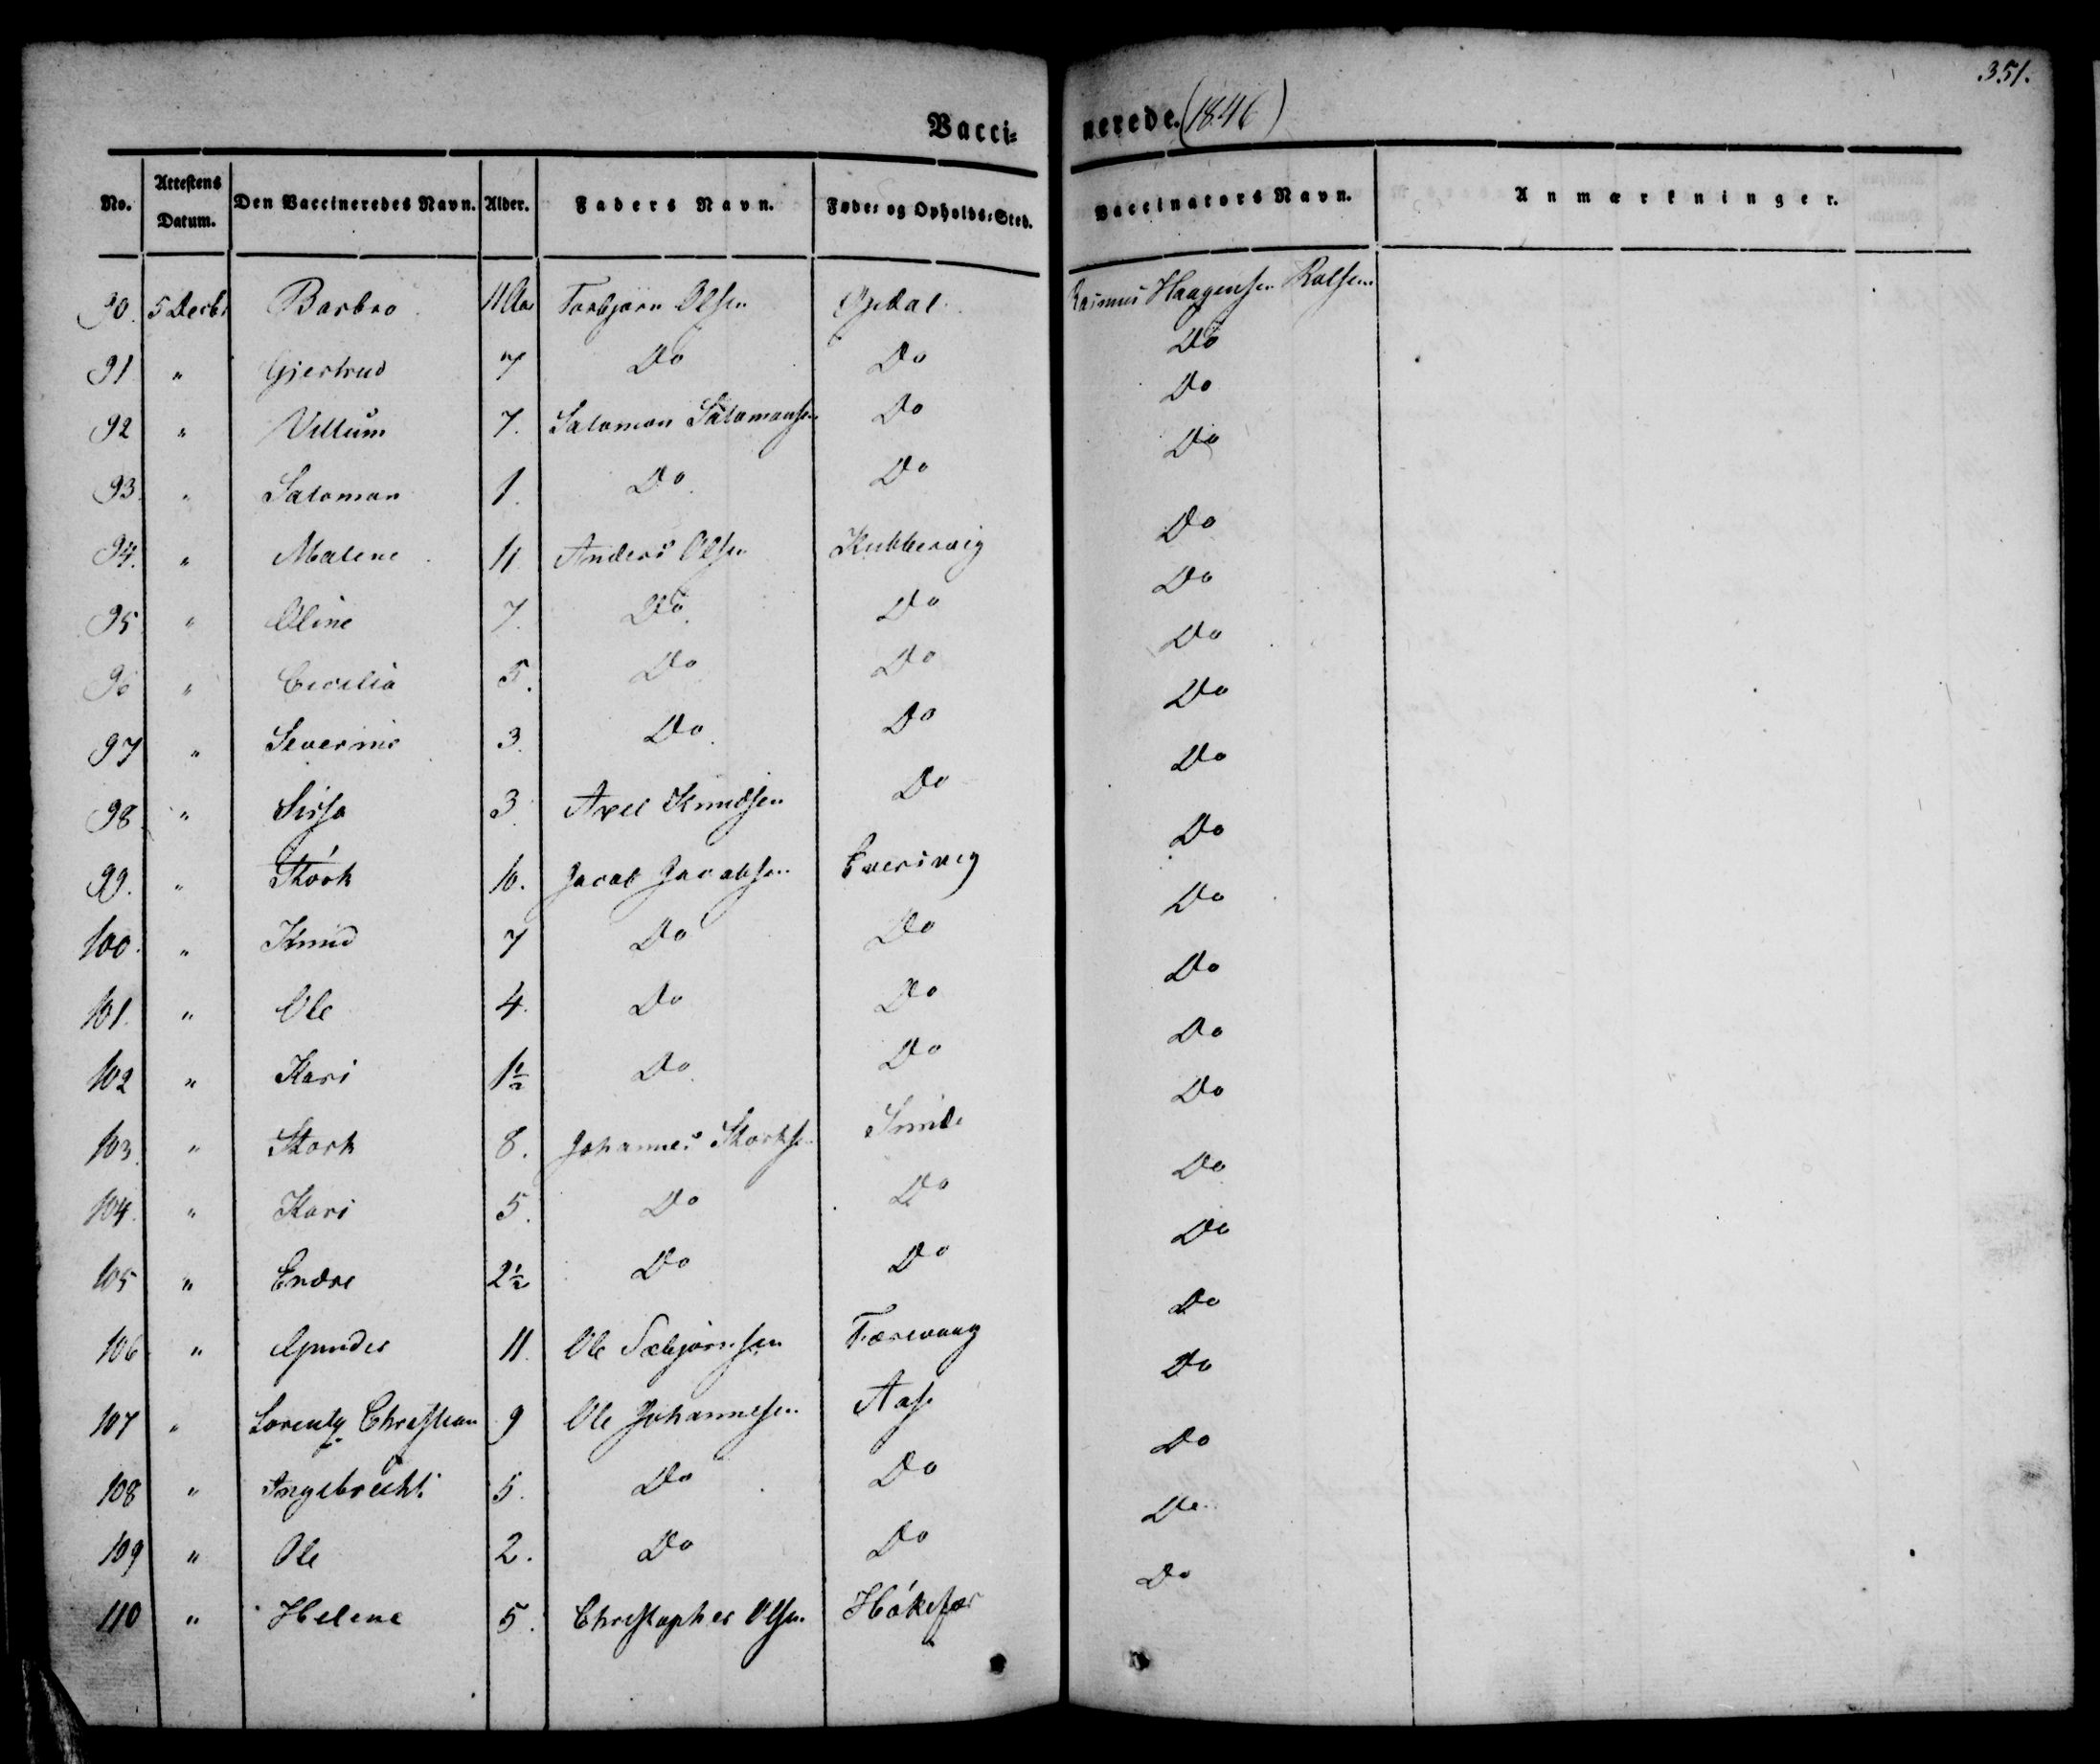 351.
Vaccinerede. (1846)
No. Attestens Datum. Den Vaccineredes Navn. Alder. Faders Navn. Føde- og Opholds-Sted. Vaccinators Navn. Anmærkninger.
90. 5 Decbr Barbro 11 Aar Torbjørn Olsen Opdal Rasmus Haagensen Rolfsen
91 " Gjertrud 7 Do Do Do
92 " Villum 7. Salomon Salomonsen Do Do
93. " Salomon 1. Do Do Do
94. " Malene 11 Anders Olsen Kubbervig Do
95 " Oline 7. Do Do Do
96 " Cecilia 5. Do Do Do
97 " Severine 3. Do Do Do
98 " Sissa 3. Axel Knudsen Do Do
99. " Størk 10. Jacob Jacobsen Eversvig Do
100. " Knud 7 Do Do Do
101. " Ole 4. Do Do Do
102 " Kari 1½ Do Do Do
103. " Størk 8. Johannes Størksen Do
104. " Kari 5. Do Do Do
105 " Endre 2½ Do Do Do
106 " 11. Ole Sæbjørnsen Færevaag Do
107 " Lorentz Christian 9 Ole Johannesen Aase Do
108 " Ingebrecht 5. Do Do Do
109 " Ole 2. Do Do Do
110 " Helene 5. Christopher Olsen Do